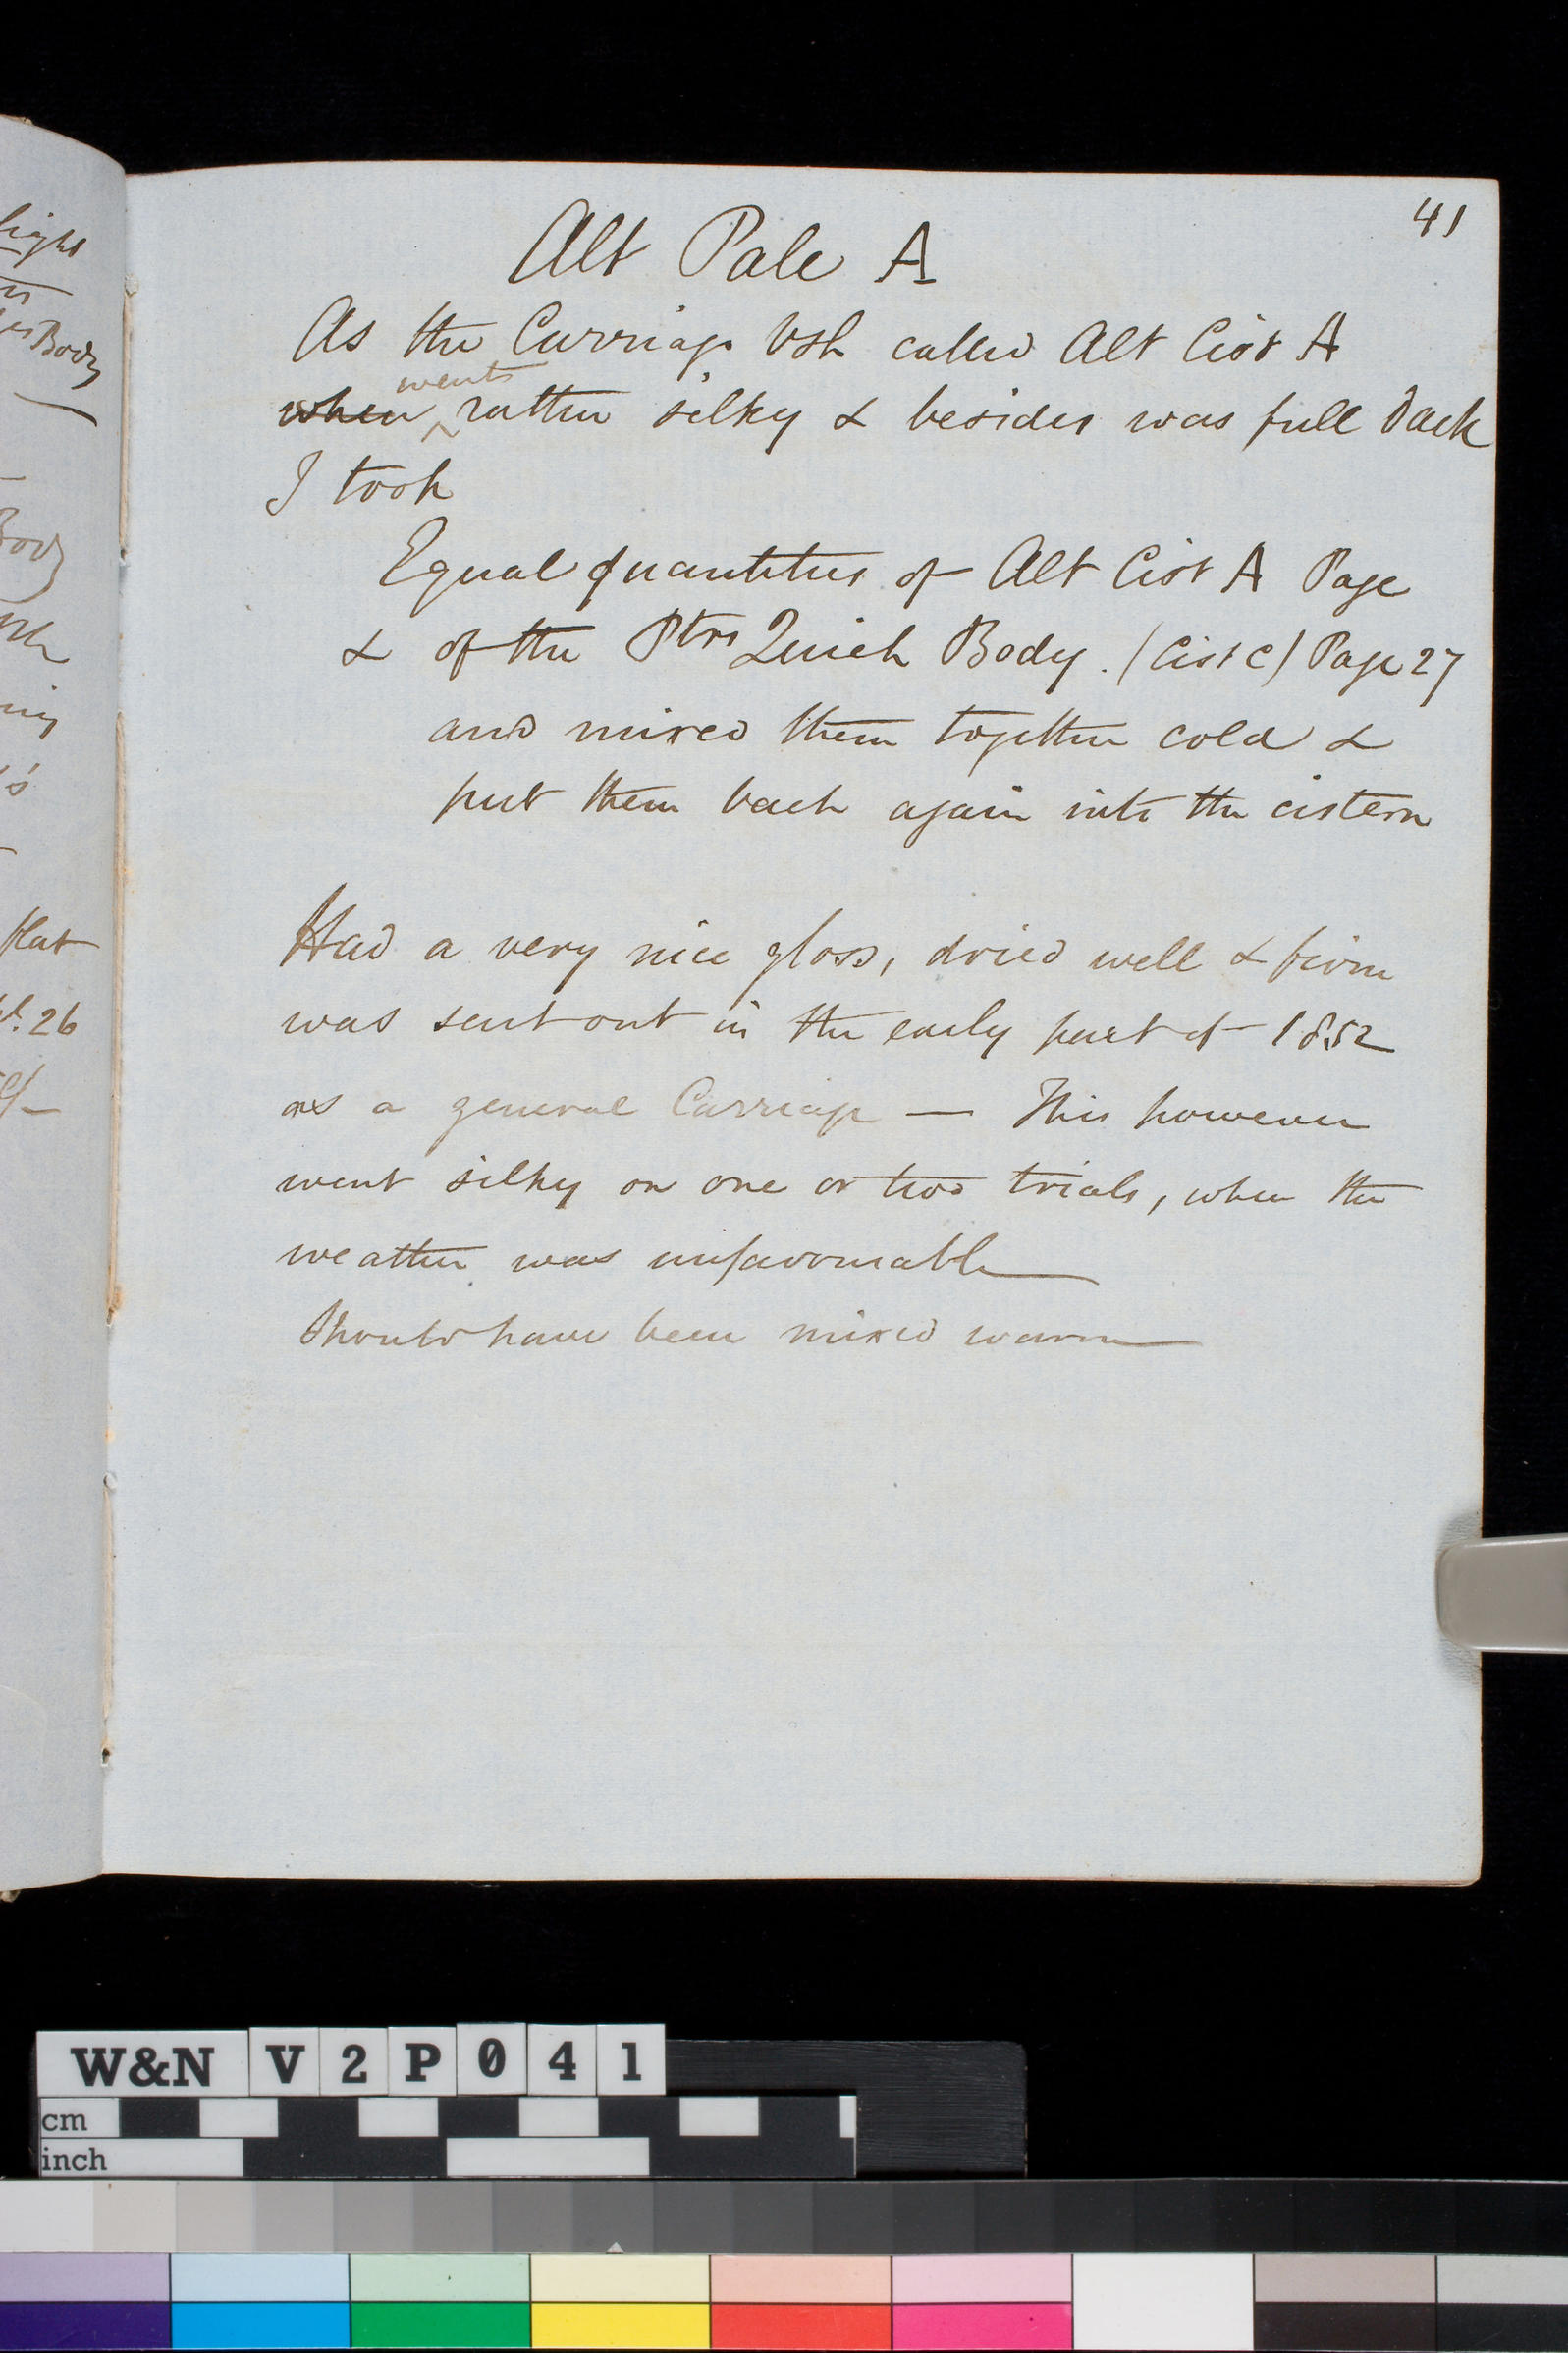 light
Body
Body
ing
flat
26
41
Alt Pale A
As the Carriage Vsh called Alt Cist A
when went rather silky & besides was full dark
I took
Equal quantities of Alt Cist A Page
& of the Ptrs Quick Body. (Cist C) Page 27
and mixed them together cold &
put them back again into the cistern
Had a very nice gloss, dried well & firm
was sent out in the early part of 1852
as a general Carriage — This however
went silky on one or two trials, when the
weather was unfavourable
Should have been mixed warm
W&N V2P041
cm
inch